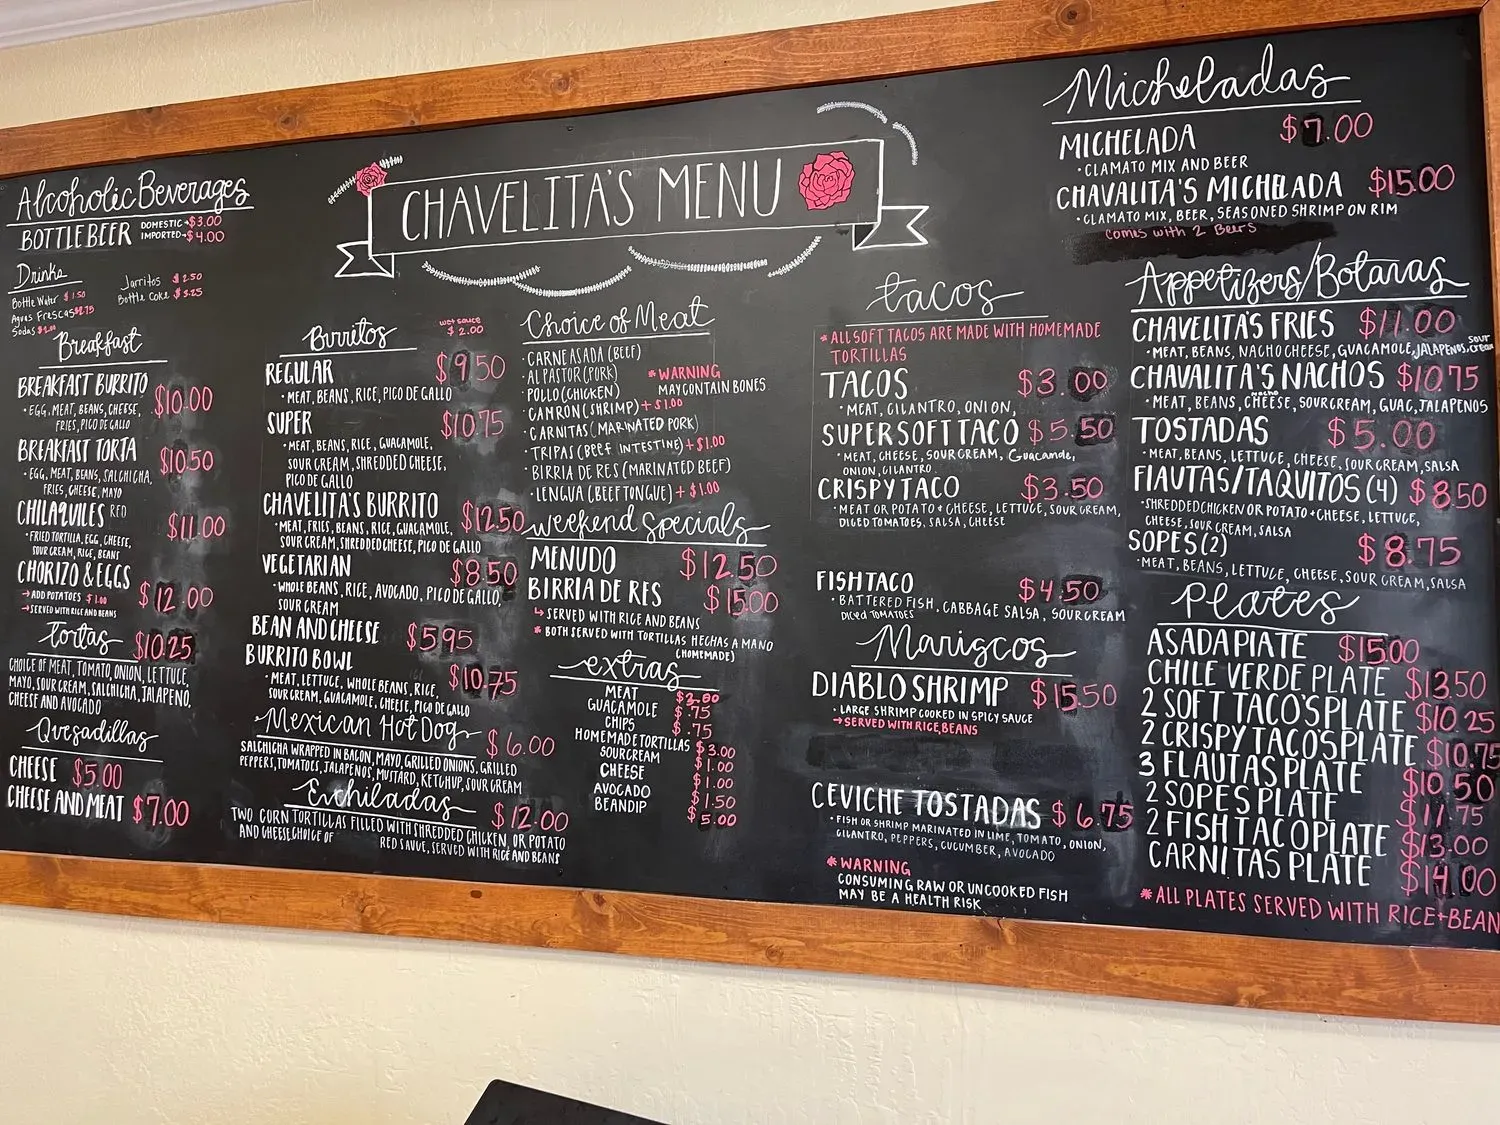 CHAVELITA'S MENU
Alcoholic Beverages
BOTTLE BEER DOMESTIC → $3.00
IMPORTED → $4.00
Drinks
Bottle Water $1.50
Agvas Frescas $2.75
Sodas
Jarritos $2.50
Bottle Coke $3.25
Breakfast
BREAKFAST BURRITO $10.00
• EGG, MEAT, BEANS, CHEESE,
FRIES, PICO DE GALLO
BREAKFAST TORTA $10.50
• EGG, MEAT, BEANS, SALCHICHA,
FRIES, CHEESE, MAYO
CHILAQUILES RED $11.00
• FRIED TORTILLA, EGG, CHEESE,
SOUR CREAM, RICE, BEANS
CHORIZO & EGGS $12.00
→ ADD POTATOES $1.00
→ SERVED WITH RICE AND BEANS
Tortas $10.25
CHOICE OF MEAT, TOMATO, ONION, LETTUCE,
MAYO, SOUR CREAM, SALCHICHA, JALAPENO,
CHEESE AND AVOCADO
Quesadillas
CHEESE $5.00
CHEESE AND MEAT $7.00
Burritos wet sauce
$2.00
REGULAR $9.50
• MEAT, BEANS, RICE, PICO DE GALLO
SUPER $10.75
• MEAT, BEANS, RICE, GUACAMOLE,
SOUR CREAM, SHREDDED CHEESE,
PICO DE GALLO
CHAVELITA'S BURRITO $12.50
• MEAT, FRIES, BEANS, RICE, GUACAMOLE,
SOUR CREAM, SHREDDED CHEESE, PICO DE GALLO
VEGETARIAN $8.50
• WHOLE BEANS, RICE, AVOCADO, PICO DE GALLO,
SOUR CREAM
BEAN AND CHEESE $5.95
BURRITO BOWL $10.75
• MEAT, LETTUCE, WHOLE BEANS, RICE,
SOUR CREAM, GUACAMOLE, CHEESE, PICO DE GALLO
Mexican Hot Dog $6.00
SALCHICHA WRAPPED IN BACON, MAYO, GRILLED ONIONS, GRILLED
PEPPERS, TOMATOES, JALAPENOS, MUSTARD, KETCHUP, SOUR CREAM
Enchiladas $12.00
TWO CORN TORTILLAS FILLED WITH SHREDDED CHICKEN, OR POTATO
AND CHEESE, CHOICE OF RED SAUVE, SERVED WITH RICE AND BEANS
Choice of Meat
• CARNE ASADA (BEEF)
• AL PASTOR (PORK)
• POLLO (CHICKEN)
• CAMRON (SHRIMP) + $1.00
• CARNITAS (MARINATED PORK)
• TRIPAS (BEEF INTESTINE) + $1.00
• BIRRIA DE RES (MARINATED BEEF)
• LENGUA (BEEF TONGUE) + $1.00
* WARNING
MAY CONTAIN BONES
Weekend Specials
MENUDO $12.50
BIRRIA DE RES $15.00
↳ SERVED WITH RICE AND BEANS
* BOTH SERVED WITH TORTILLAS HECHAS A MANO
(HOMEMADE)
extras
MEAT
GUACAMOLE $.75
CHIPS $.75
HOMEMADE TORTILLAS $3.00
SOURCREAM $1.00
CHEESE $1.00
AVOCADO $1.50
BEAN DIP $5.00
tacos
* ALL SOFT TACOS ARE MADE WITH HOMEMADE
TORTILLAS
TACOS $3.00
• MEAT, CILANTRO, ONION,
SUPER SOFT TACO $5.50
• MEAT, CHEESE, SOUR CREAM, Guacamole,
ONION, CILANTRO
CRISPY TACO $3.50
• MEAT OR POTATO + CHEESE, LETTUCE, SOUR CREAM,
DICED TOMATOES, SALSA, CHEESE
FISH TACO $4.50
• BATTERED FISH, CABBAGE SALSA, SOUR CREAM
DICED TOMATOES
Mariscos
DIABLO SHRIMP $15.50
• LARGE SHRIMP COOKED IN SPICY SAUCE
→ SERVED WITH RICE, BEANS
CEVICHE TOSTADAS $6.75
• FISH OR SHRIMP MARINATED IN LIME, TOMATO, ONION,
CILANTRO, PEPPERS, CUCUMBER, AVOCADO
* WARNING
CONSUMING RAW OR UNCOOKED FISH
MAY BE A HEALTH RISK
Micheladas
MICHELADA $7.00
• CLAMATO MIX AND BEER
CHAVALITA'S MICHELADA $15.00
• CLAMATO MIX, BEER, SEASONED SHRIMP ON RIM
comes with 2 Beers
Appetizers/Botanas
CHAVELITA'S FRIES $11.00
• MEAT, BEANS, NACHO CHEESE, GUACAMOLE, JALAPENOS, SOUR cream
CHAVALITA'S NACHOS $10.75
• MEAT, BEANS, Nacho CHEESE, SOUR CREAM, GUAC, JALAPENOS
TOSTADAS $5.00
• MEAT, BEANS, LETTUCE, CHEESE, SOUR CREAM, SALSA
FLAUTAS/TAQUITOS (4) $8.50
• SHREDDED CHICKEN OR POTATO + CHEESE, LETTUCE,
CHEESE, SOUR CREAM, SALSA
SOPES (2) $8.75
• MEAT, BEANS, LETTUCE, CHEESE, SOUR CREAM, SALSA
Plates
ASADA PLATE $15.00
CHILE VERDE PLATE $13.50
2 SOFT TACO'S PLATE $10.25
2 CRISPY TACOS PLATE $10.75
3 FLAUTAS PLATE $10.50
2 SOPES PLATE $11.75
2 FISH TACO PLATE $13.00
CARNITAS PLATE $14.00
* ALL PLATES SERVED WITH RICE + BEAN